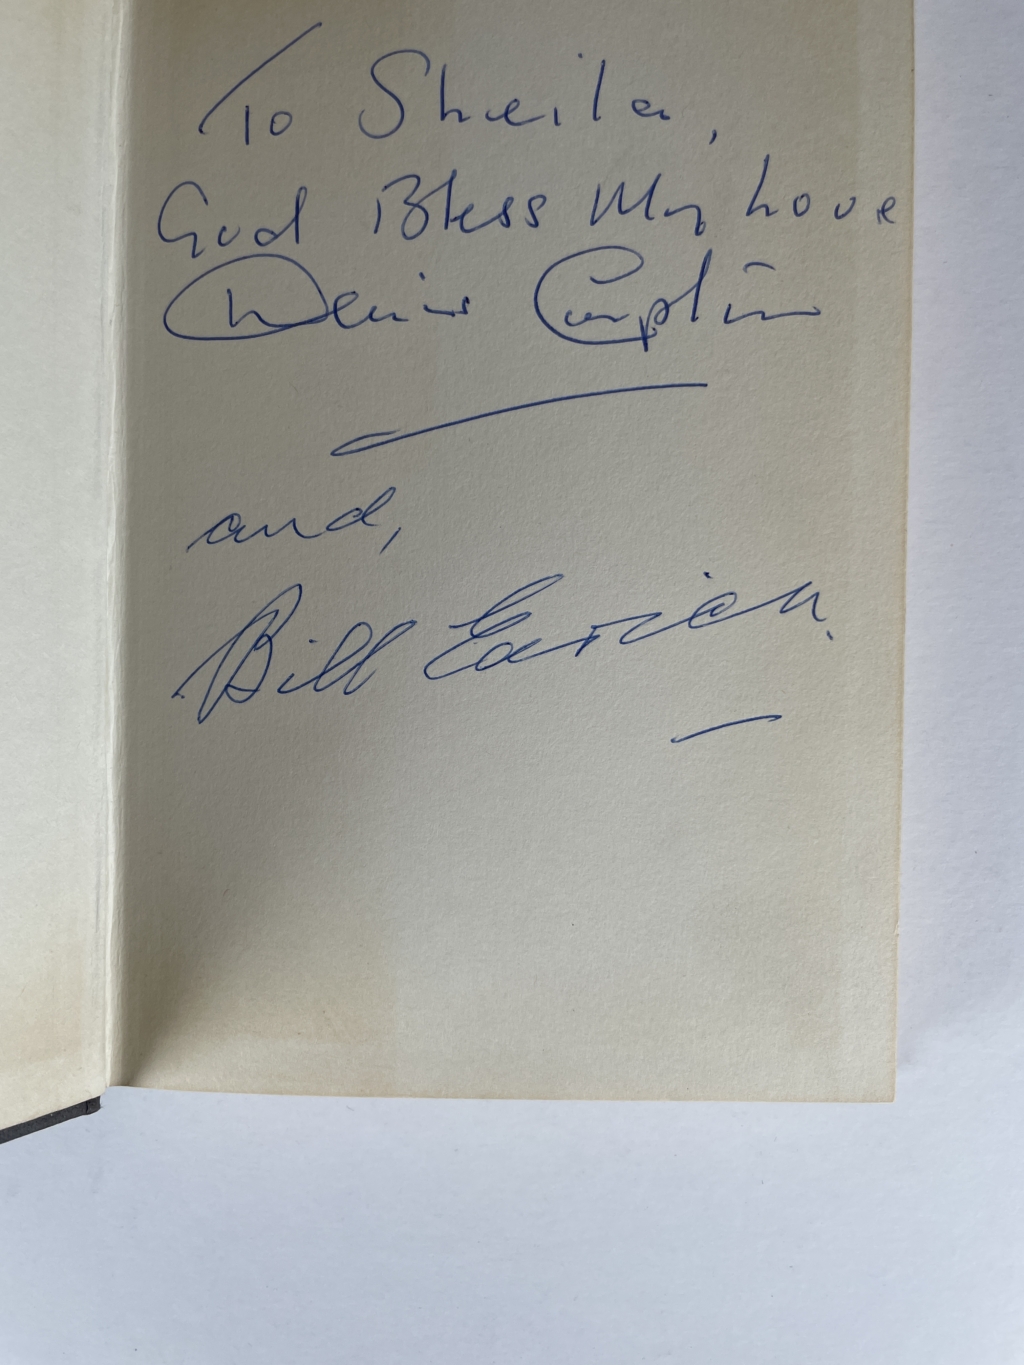 To Sheila,
God Bless My Love
Denis Compton
and,
Bill Edrich.